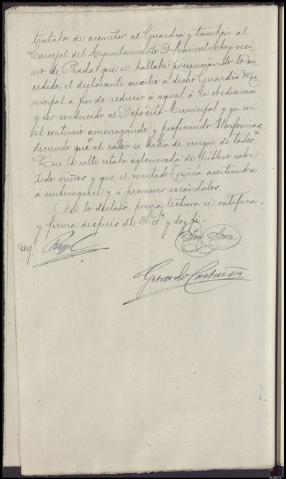 trataba de acometer al Guardia y tambien al
Concejal del Ayuntamiento D. Manuel Rey veci
no de Prado, que se hallaba presenciando lo su
cedido, el declarante auxilió a dicho Guardia Mu
nicipal a fin de reducir a aquel á la obediencia
y ser conducido al Depósito Municipal y ya en
el continuó amenazando y profiriendo blasfemias
diciendo que "al salir se habia de vengar de todos"
Que la calle estaba aglomerada de público sobre
todo niños y que el mentado acostumbra
á embriagarse y á promover escándalos.
Asi lo declaró, previa lectura se ratifica
y firma despues de S. Sª y doy fé.
Gerardo Castañer